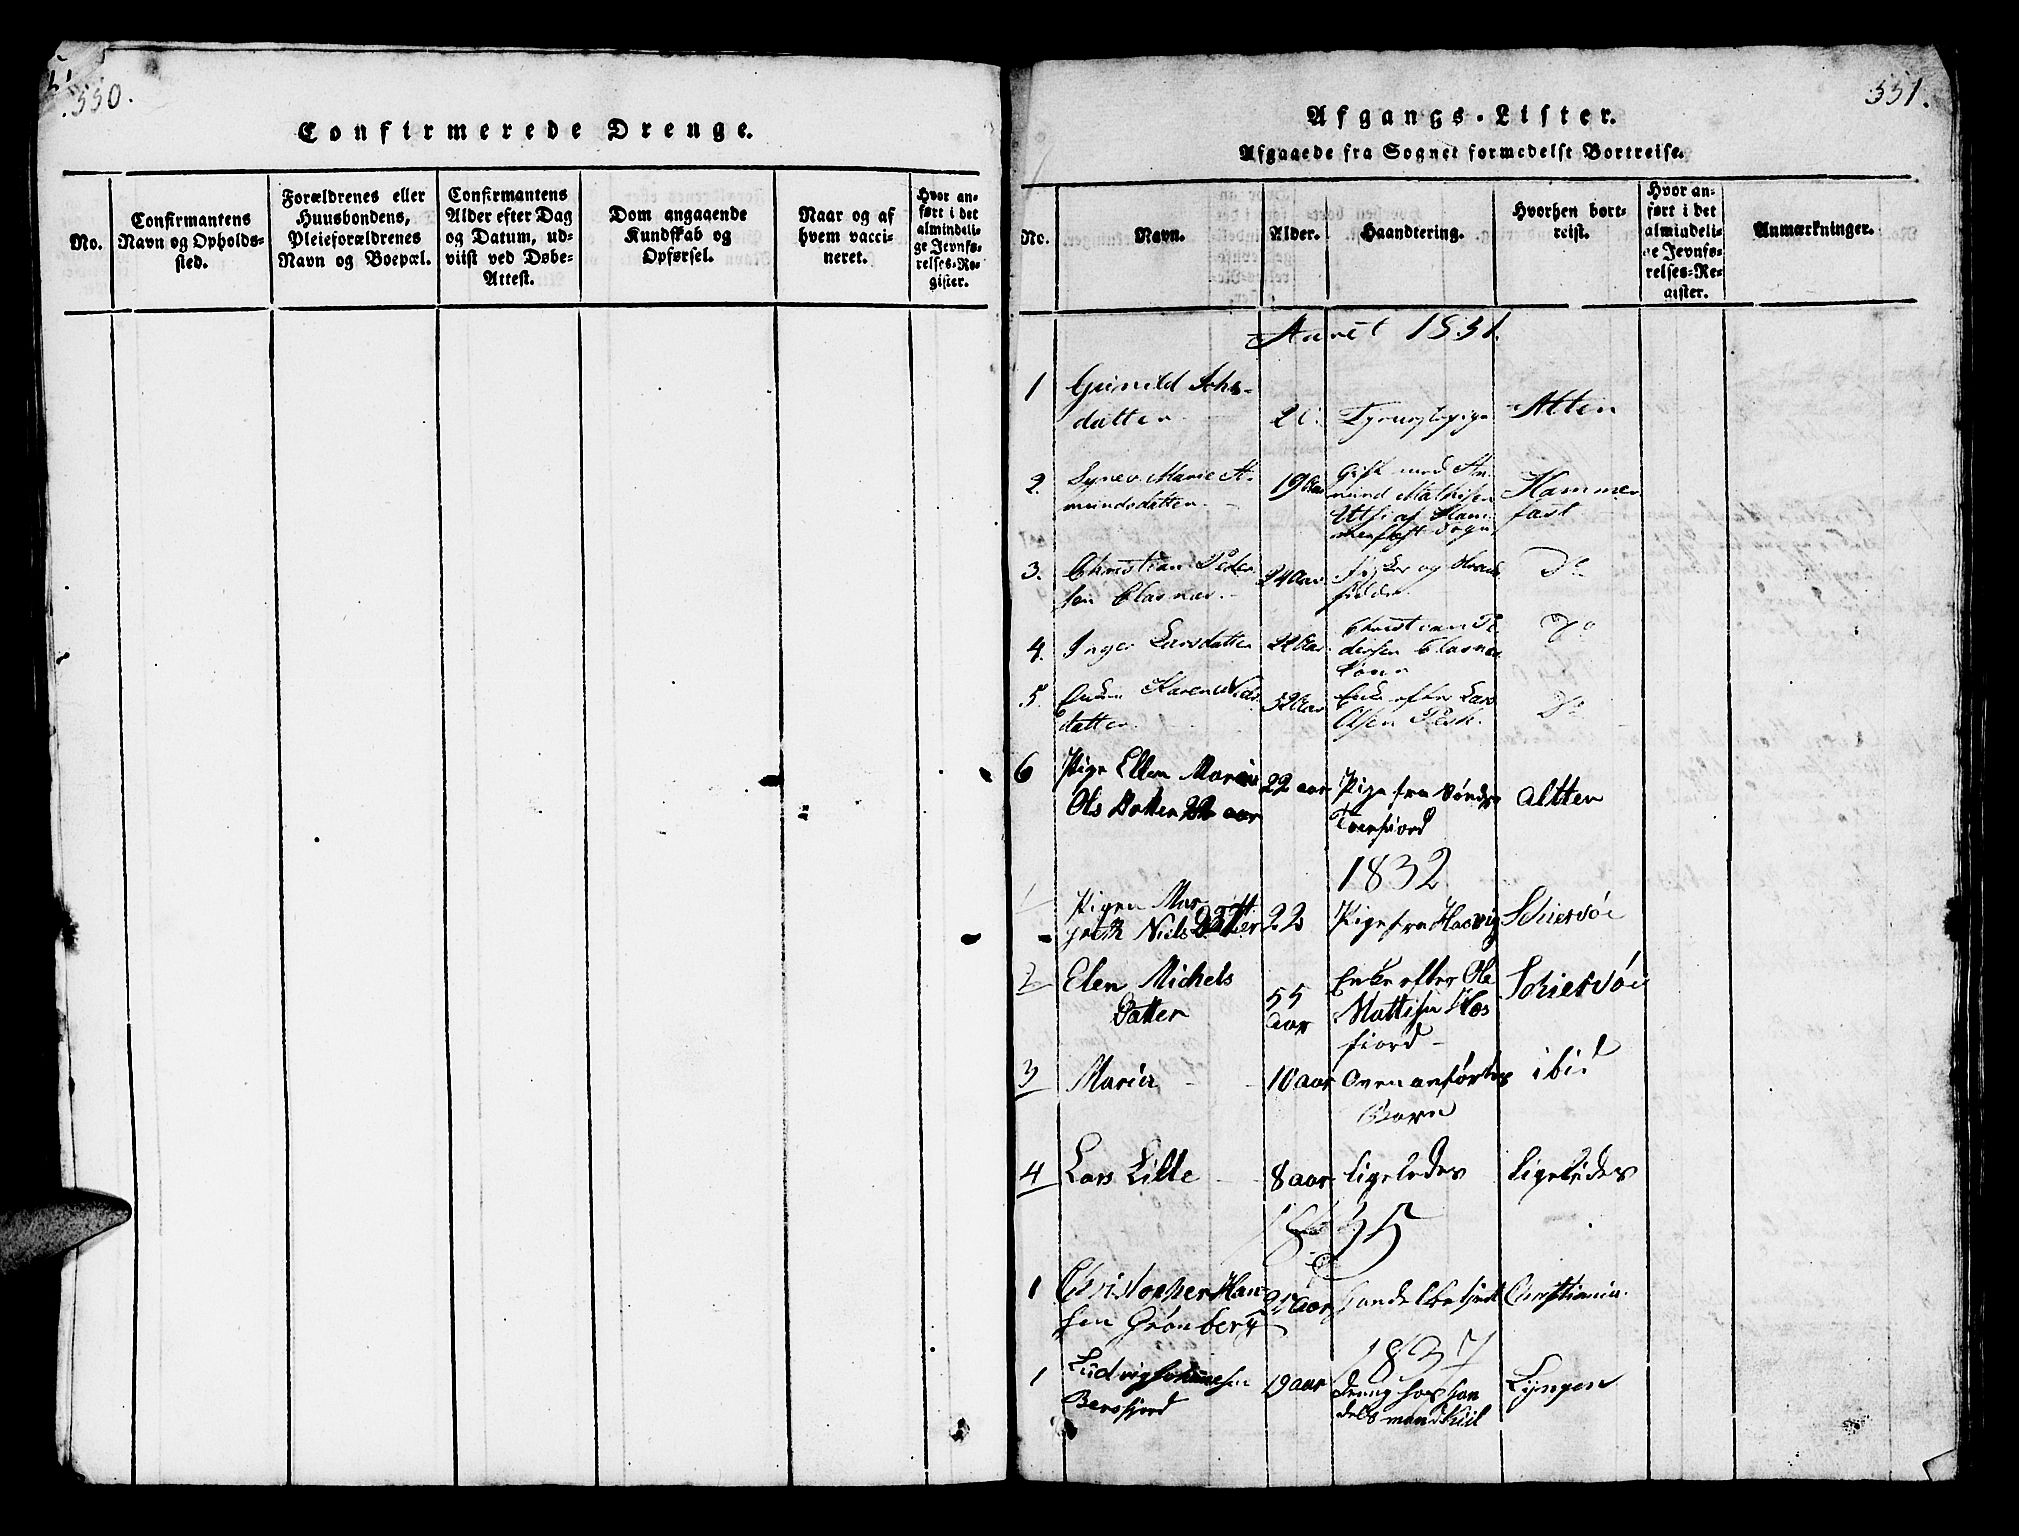 330.
Confirmerede Drenge.
No.
Confirmantens
Navn og Opholds-
sted.
Forældrenes eller
Huusbondens,
Pleieforældrenes
Navn og Boepæl.
Confirmantens
Alder efter Dag
og Datum, ud-
viist ved Døbe-
Attest.
Dom angaaende
Kundskab og
Opførsel.
Naar og af
hvem vacci-
neret.
Hvor an-
ført i det
almindeli-
ge Jevnfø-
relses-Re-
gister.
331.
Afgangs-Lister.
Afgaaede fra Sognet formedelst Bortreise.
No.
Navn.
Alder.
Haandtering.
Hvorhen bort-
reist.
Hvor an-
ført i det
almindeli-
ge Jevnfø-
relses-Re-
gister.
Anmærkninger.
Aaret 1831.
1 Gunild Johs-
datter 20. Alten
2. Synev Marie A-
mundsdatter. 19 Aar Gift med Am-
mund Mathisen
Utsi af Ham-
merfest Sogn Hammer-
fæst
3. Christian Peder-
sen Clasnæs. 24 Aar. Fisker og
D<sup>o</sup>
4. Inger Larsdatter 22 Aar. Christian Pe-
dersen Clasnæs
Kone D<sup>o</sup>
5. Enken Karen Niels-
datter 52 Aar Enke efter Lars
Olsen Pesk. D<sup>o</sup>
6 Pige Ellen Maria
Ols Datter 22 aar 22 aar Pige fra Søndr
Tverfiord Altten
1832
1 Pigen Mar
greth Niels Datter 22 Pige fra Hasvig Schiervøe
2 Elen Michels
Datter 55
aar Enke efter Ole
Mattisen
fiord - Schiervöe
3 Maria - 10 aar Oven anførtes
Barn ibid
4 Lars Lille - 8 aar ligeledes Ligeledes
1835
1 Christopher Han-
sen Grønberg 25 aar Handelsbetjent Christiania.
1837
1 Ludvig Johannesen
Bersfjord 19 aar dreng hos han
dels mand Kiil Lyngen